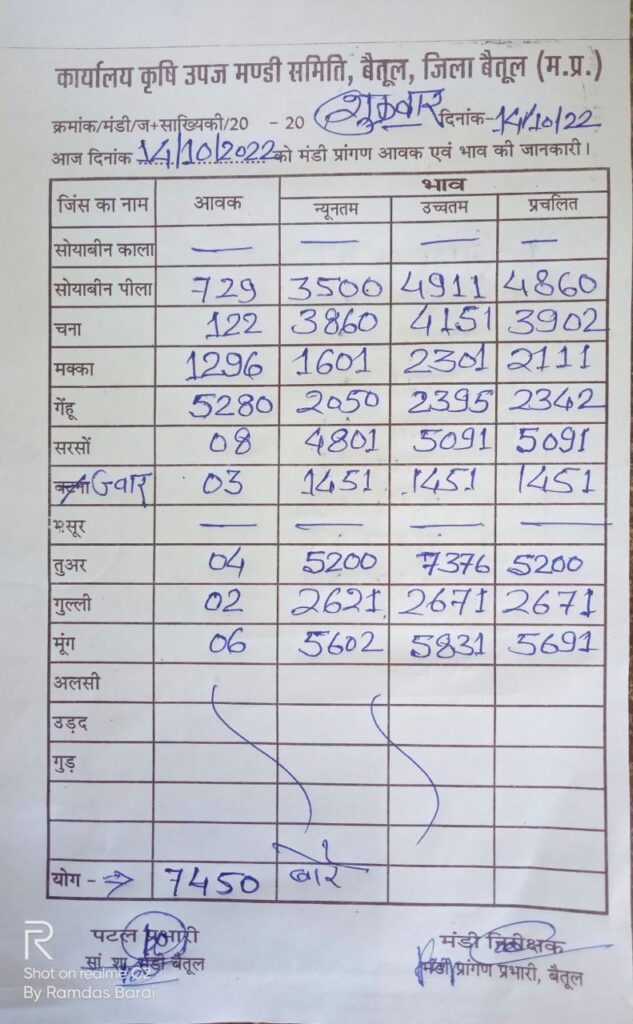 कार्यालय कृषि उपज मण्डी समिति, बैतूल, जिला बैतूल (म.प्र.)
क्रमांक/मंडी/ज+साख्यिकी/20 - 20 शुक्रवार दिनांक-14/10/22
आज दिनांक 14/10/2022 को मंडी प्रांगण आवक एवं भाव की जानकारी।
जिंस का नाम आवक भाव
न्यूनतम उच्चतम प्रचलित
सोयाबीन काला — — — —
सोयाबीन पीला 729 3500 4911 4860
चना 122 3860 4151 3902
मक्का 1296 1601 2301 2111
गेंहू 5280 2050 2395 2342
सरसों 08 4801 5091 5091
ग्वार 03 1451 1451 1451
मसूर — — — —
तुअर 04 5200 7376 5200
गुल्ली 02 2621 2671 2671
मूंग 06 5602 5831 5691
अलसी
उड़द
गुड़
योग - → 7450 बोरे
पटल प्रभारी मंडी निरीक्षक
सां. शा. मंडी बैतूल मंडी प्रांगण प्रभारी, बैतूल
R
Shot on realme C2
By Ramdas Barai